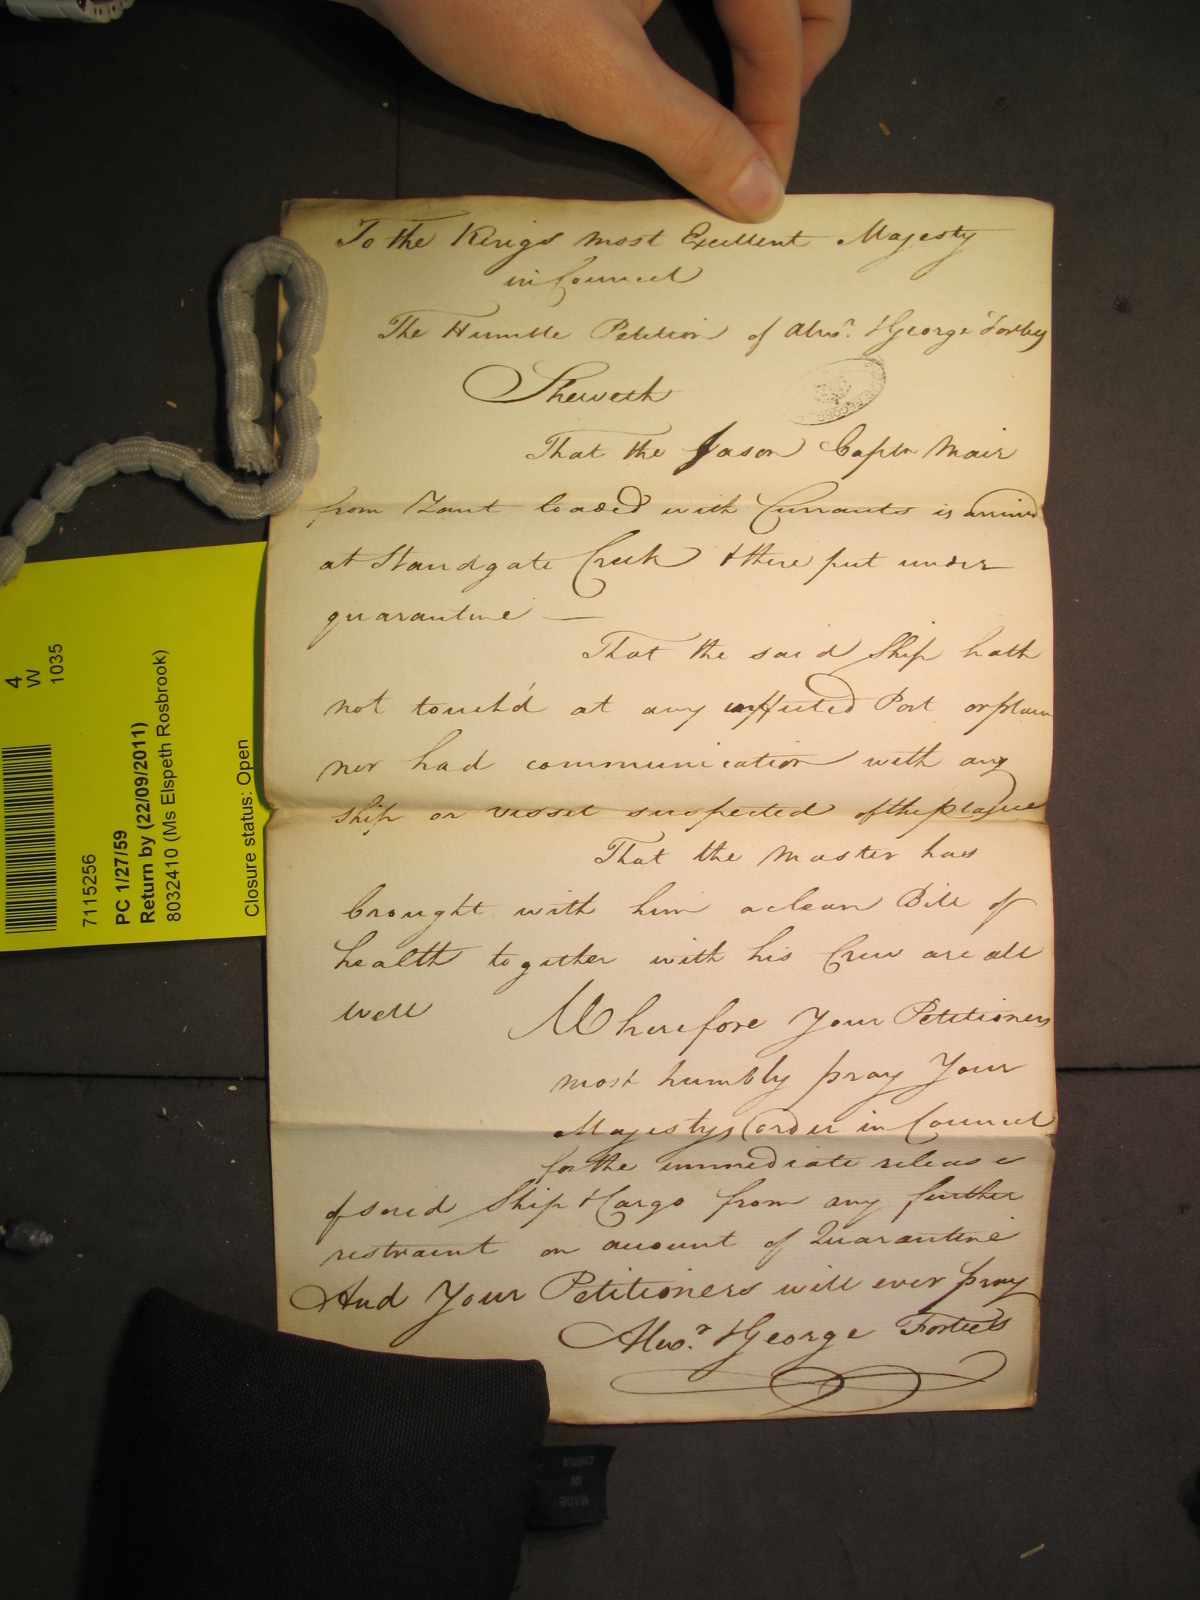 To the Kings most Excellent Majesty
in Council
The Humble Petition of Alexr. & George
Sheweth
That the Jason Captn Mair
from Zant loaded with Currants is arrived
at Standgate Creek & there put under
quarantine —
That the said Ship hath
not touch'd at any infected Port or place
nor had communication with any
ship or vessel suspected of the plague
That the Master has
brought with him a clean Bill of
health together with his Crew are all
well Wherefore Your Petitioners
most humbly pray Your
Majestys order in Council
for the immediate release
of said Ship & Cargo from any further
restraint on account of Quarantine
And Your Petitioners will ever pray
Alexr. & George
4
W
1035
7115256
PC 1/27/59
Return by (22/09/2011)
8032410 (Ms Elspeth Rosbrook)
Closure status: Open
MADE
IN
CHINA